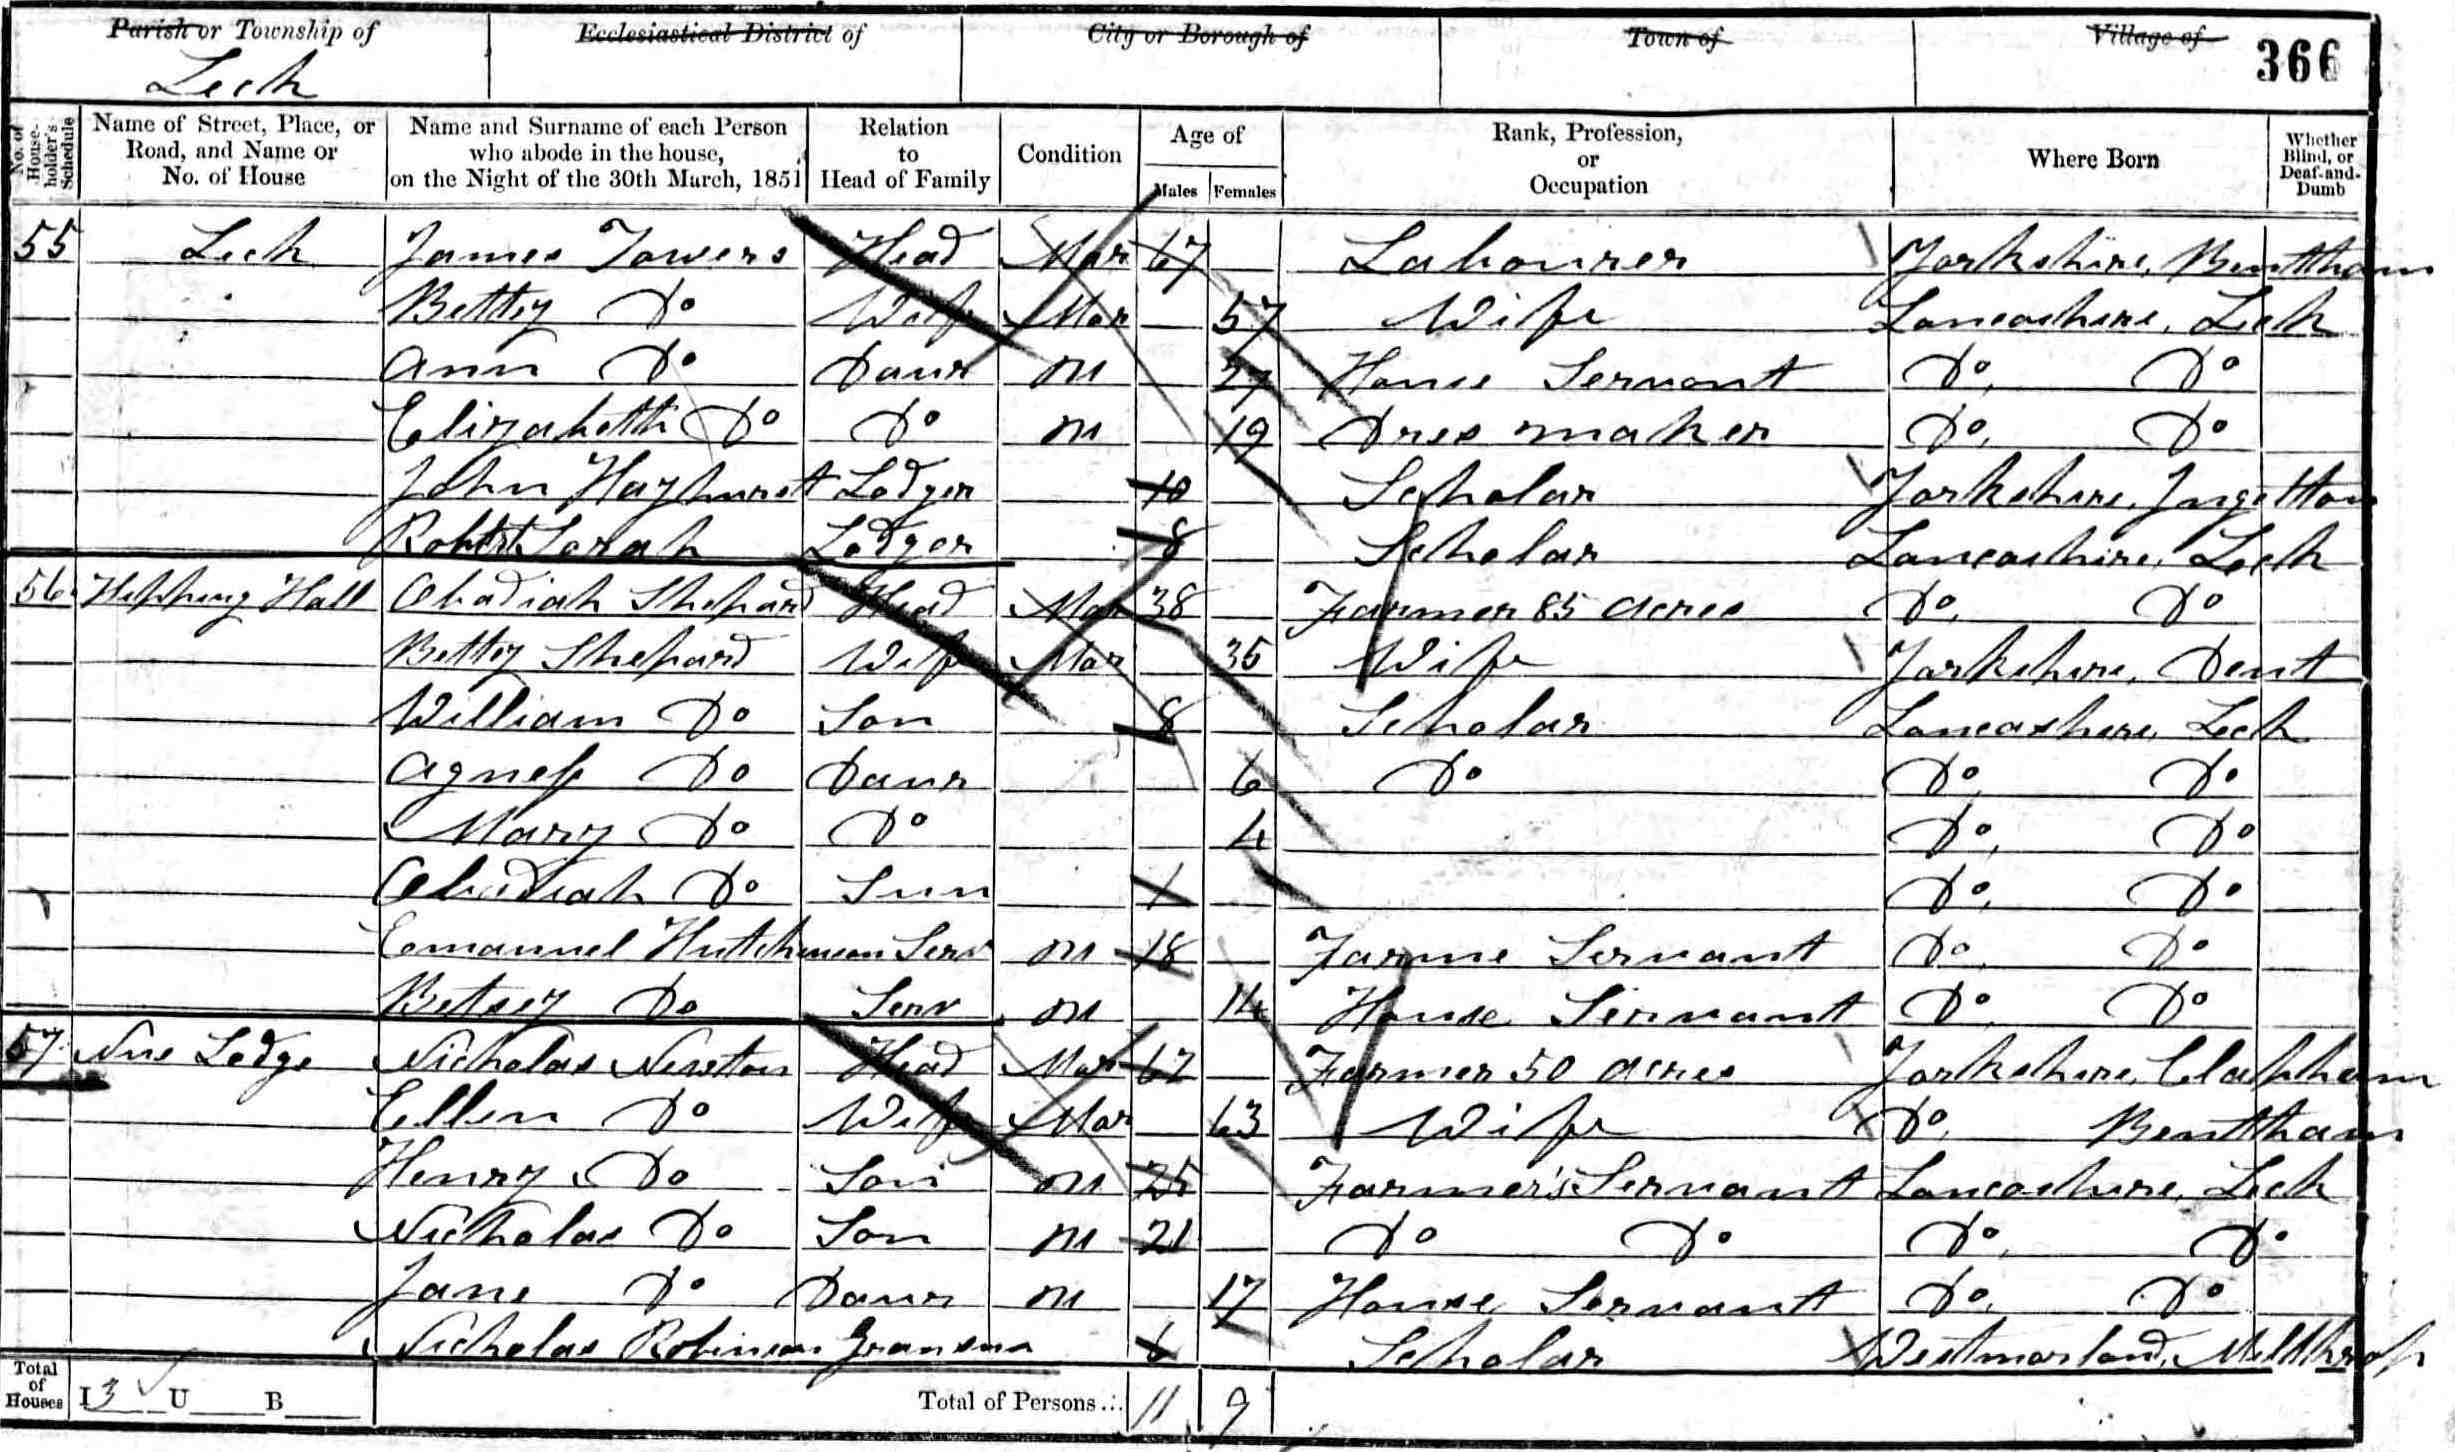 Parish or Township of Ecclesiastical District of City or Borough of Town of Village of 366
Leck
No. of House-holder's Schedule Name of Street, Place, or Road, and Name or No. of House Name and Surname of each Person who abode in the house, on the Night of the 30th March, 1851 Relation to Head of Family Condition Age of Males Females Rank, Profession, or Occupation Where Born Whether Blind, or Deaf-and-Dumb
55 Leck James Towers Head Mar 67 Labourer Yorkshire, Benttham
Bettey Do Wife Mar 57 Wife Lancashire, Leck
Ann Do Daur 27 House Servant Do, Do
Elizabeth Do Do 19 Dres maker Do, Do
John Hayhurst Lodger 10 Scholar Yorkshire,
Robert Lodger 8 Scholar Lancashire, Leck
56 Hall Obadiah Shepard Head Mar 38 Farmer 85 acres Do, Do
Bettey Shepard Wife Mar 35 Wife Yorkshire, Dent
William Do Son 8 Scholar Lancashire, Leck
Agness Do Daur 6 Do Do, Do
Mary Do Do 4 Do, Do
Obadiah Do 1 Do, Do
Emanuel Serv 18 Farme Servant Do, Do
Betsey Do Serv 14 House Servant Do, Do
57 Lodge Nicholas Newton Head Mar 67 Farmer 50 acres Yorkshire, Clapham
Ellen Do Wife Mar 63 Wife Do, Benttham
Henry Do Son 25 Farmer's Servant Lancashire, Leck
Nicholas Do Son 21 Do Do Do, Do
Jane Do Daur 17 House Servant Do, Do
Nicholas Robinson 6 Scholar Westmorland,
Total of Houses I 3 U B Total of Persons 11 9